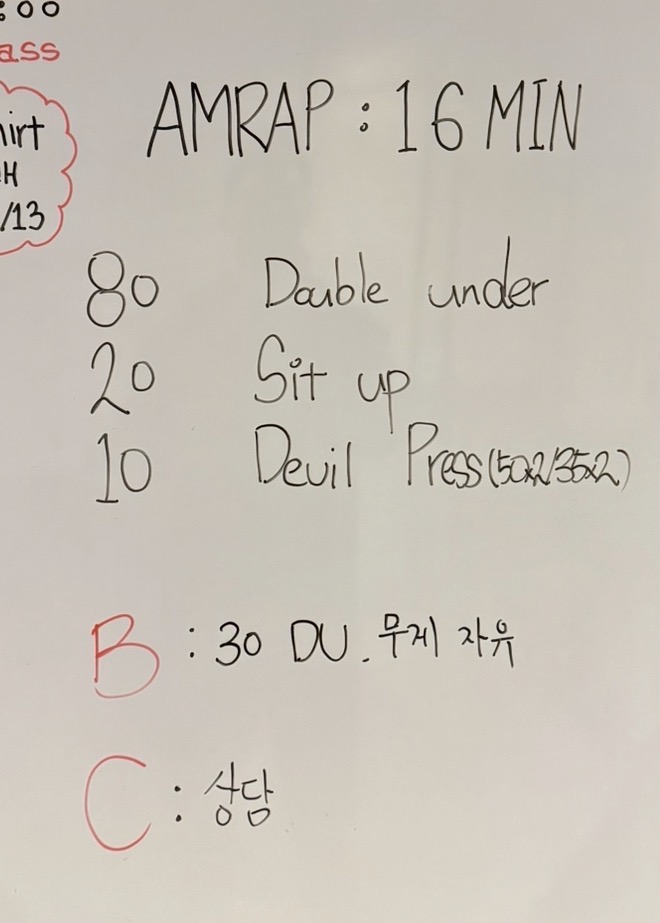 :00
ass
hirt
H
/13
AMRAP : 16 MIN
80 Double under
20 Sit up
10 Devil Press (50x2/35x2)
B : 30 DU. 무게 자유
C : 상담